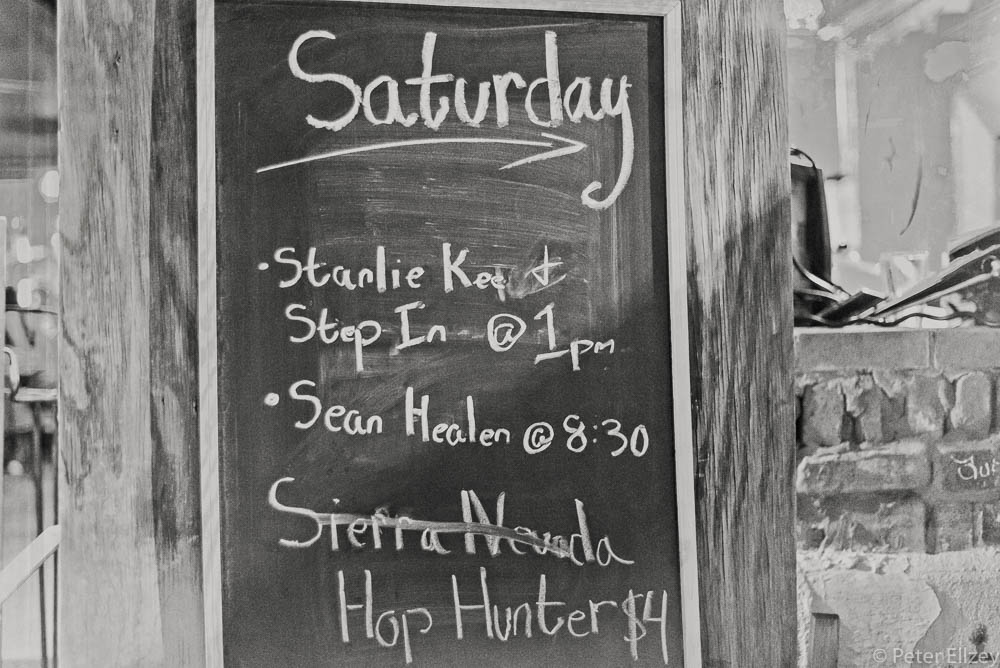 Saturday
• Starlie Kee &
Step In @ 1pm
• Sean Healen @ 8:30
Sierra Nevada
Hop Hunter $4
© PeterEllzey